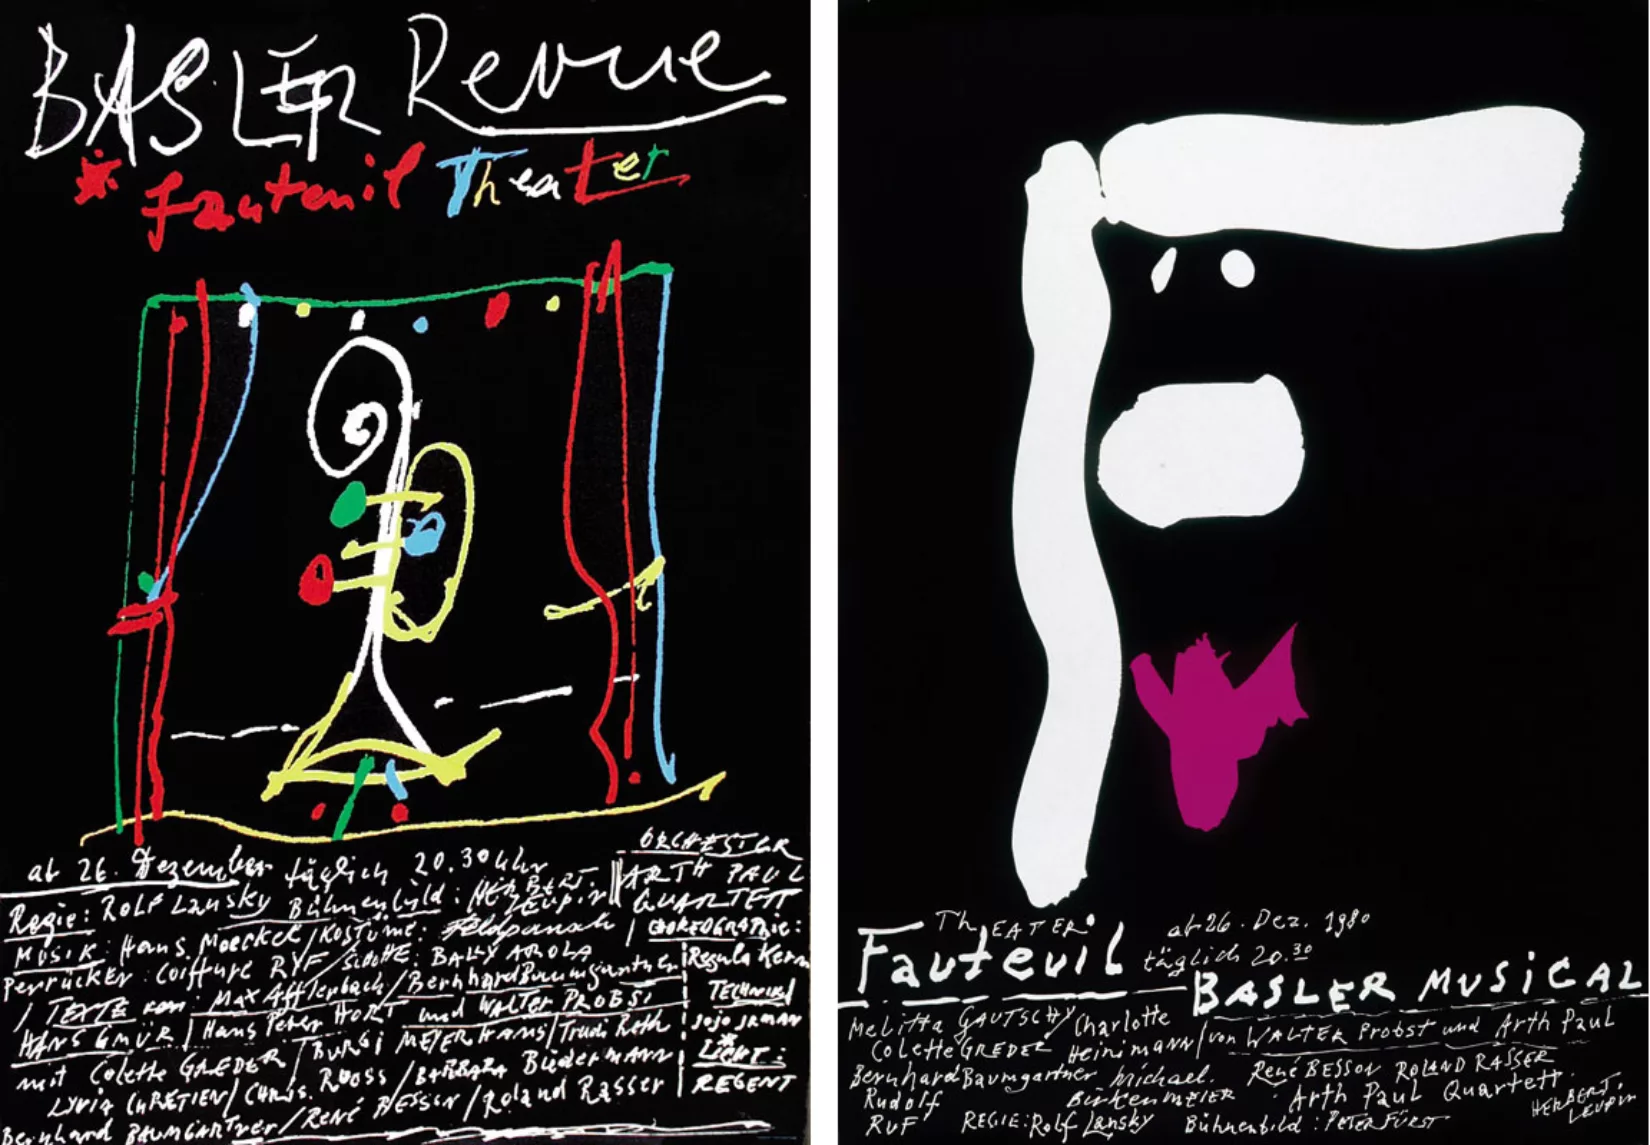 BASLER Revue
* fauteuil Theater
ab 26. Dezember täglich 20.30 Uhr
ORCHESTER
ARTH PAUL
QUARTETT
Regie: ROLF Lansky Bühnenbild: HERBERT LEUPIN
MUSIK: Hans Moeckel / KOSTÜME:
Perrücken: Coiffure RYF / SCHUHE: BALLY AROLA
/ TEXTE von: MAX Afflerbach / Bernhard Baumgartner
HANS GMÜR / Hans Peter HORT und WALTER PROBST
mit Colette GREDER / BURGI MEYER HANS / Trudi Roth
Lyria CHRÉTIEN / CHRIS. ROOSS / BARBARA Büdermann
Bernhard BAUMGARTNER / RENÉ BESSON / Roland Rasser
CHOREOGRAPHIE:
Regula Kern
TECHNIK
JoJo
LICHT:
REGENT
THEATER
Fauteuil
ab 26. Dez. 1980
täglich 20.30
BASLER MUSICAL
Melitta GAUTSCHY / Charlotte
Colette GREDER Heinimann / von WALTER Probst und Arth Paul
Bernhard Baumgartner Michael. René BESSON ROLAND RASSER
Rudolf Birkenmeier Arth Paul Quartett.
RUF REGIE: Rolf Lansky Bühnenbild: PETER FÜRST
HERBERT
LEUPIN